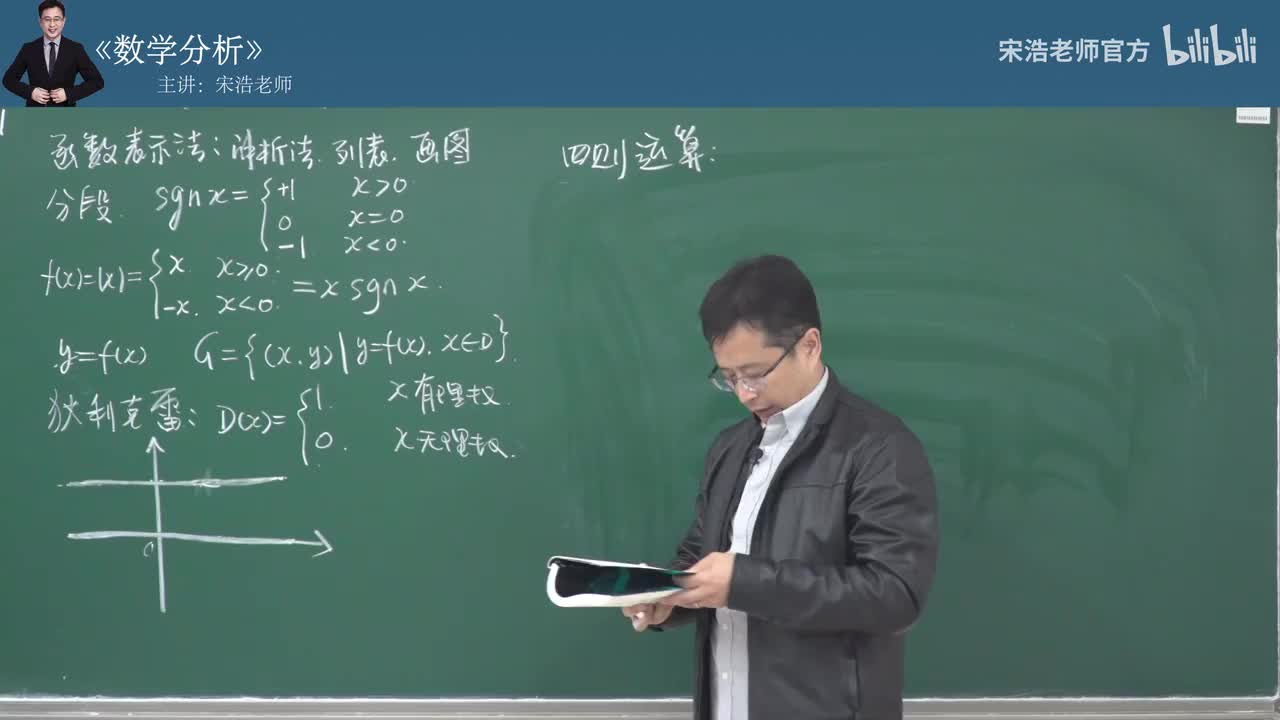 《数学分析》
主讲：宋浩老师
宋浩老师官方 bilibili
函数表示法：解析法. 列表. 画图
分段. sgn x = { +1 x>0
0 x=0
-1 x<0.
f(x)=|x|= { x. x≥0. = x sgn x.
-x. x<0.
y=f(x) G={(x,y)|y=f(x). x∈D}.
狄利克雷: D(x)= { 1. x有理数.
0. x无理数.
0
四则运算: